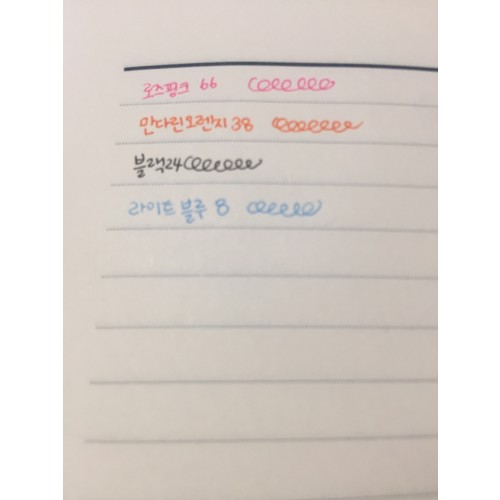 로즈핑크 66
만다린오렌지 38
블랙24
라이트 블루 8